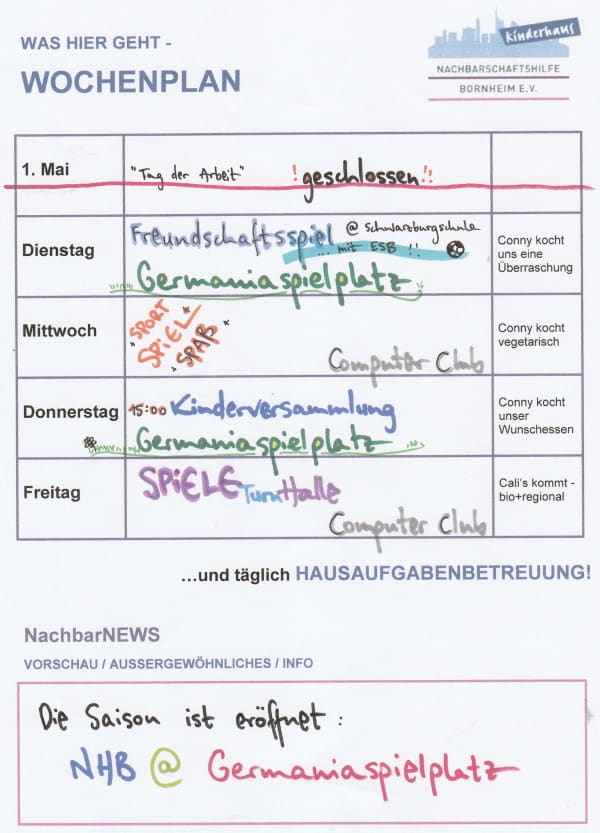 WAS HIER GEHT -
WOCHENPLAN
Kinderhaus
NACHBARSCHAFTSHILFE
BORNHEIM E.V.
1. Mai
"Tag der Arbeit" ! geschlossen !!
Dienstag
Freundschaftsspiel @ Schwarzburgschule
... mit ESB !!
Germaniaspielplatz
Conny kocht
uns eine
Überraschung
Mittwoch
SPORT
SPiEL
SPAß
Computer Club
Conny kocht
vegetarisch
Donnerstag
15:00 Kinderversammlung
Germaniaspielplatz
Conny kocht
unser
Wunschessen
Freitag
SPiELE TurnHalle
Computer Club
Cali's kommt -
bio+regional
...und täglich HAUSAUFGABENBETREUUNG!
NachbarNEWS
VORSCHAU / AUSSERGEWÖHNLICHES / INFO
Die Saison ist eröffnet:
NHB @ Germaniaspielplatz